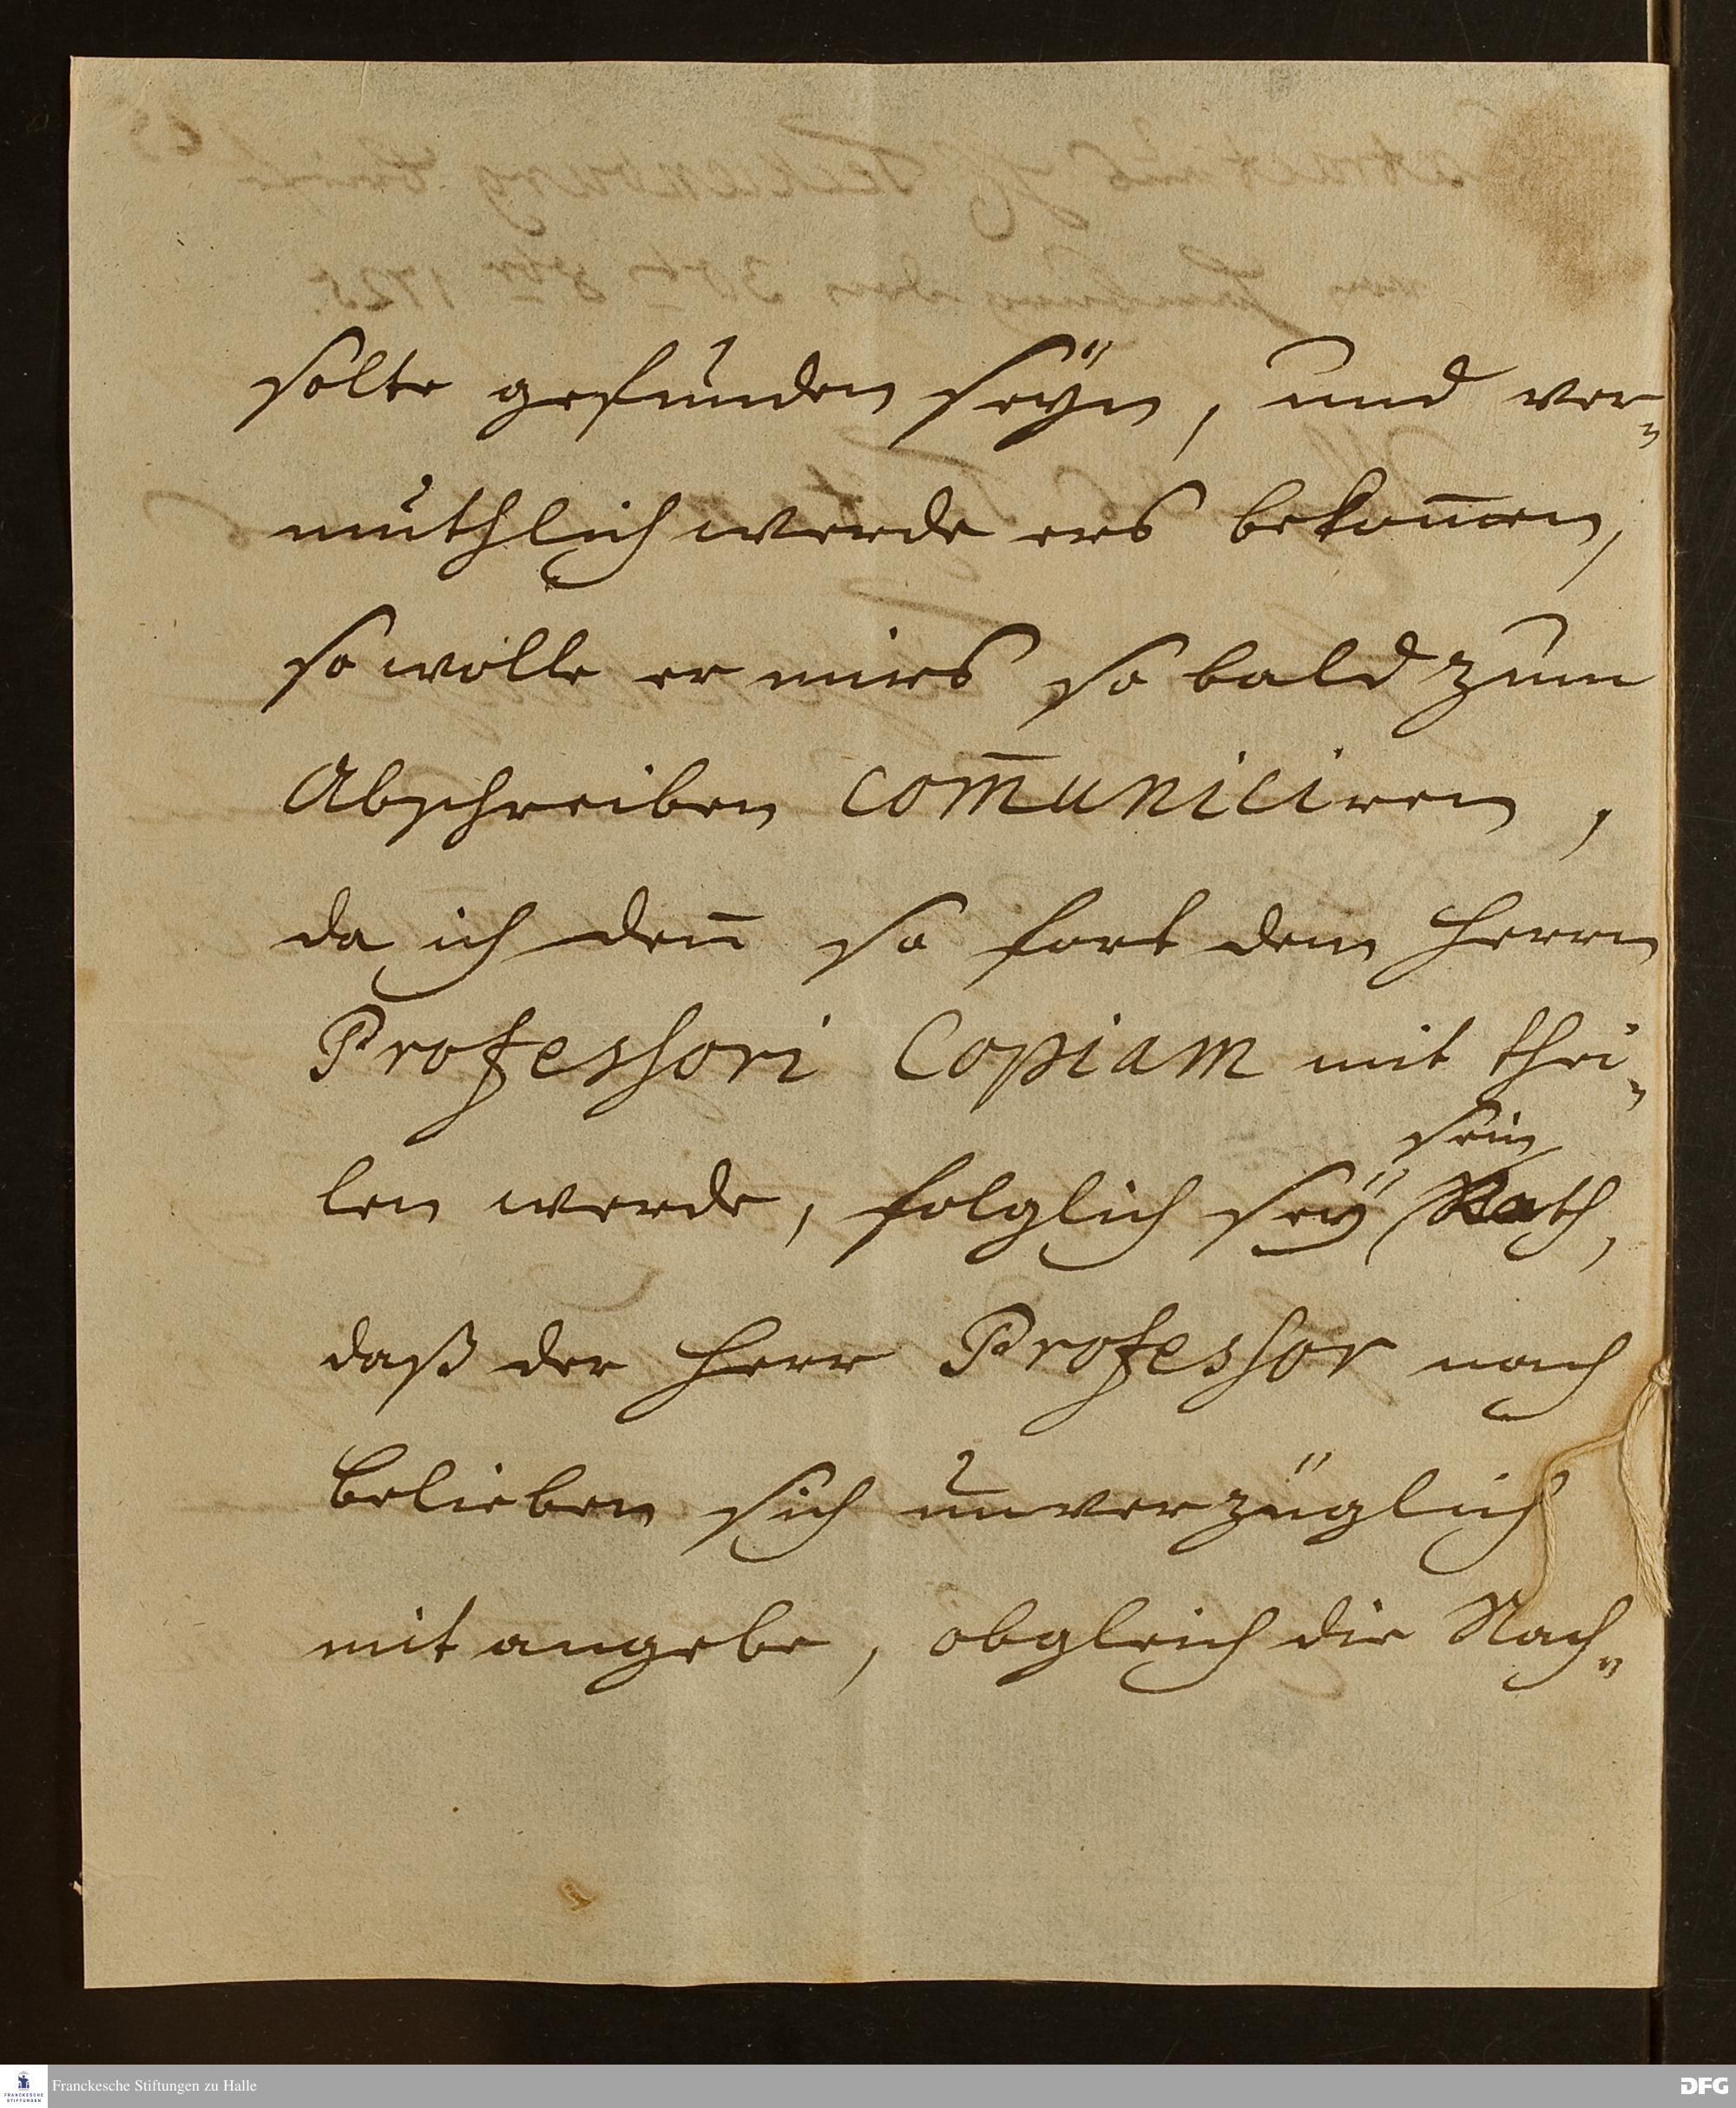 solte gefunden seÿn, und ver-
muthlich werde ers bekom̅en,
so wolle er mirs so bald zum
Abschreiben com̅uniciren,
da ich den̅ so fort dem Herrn
Professori Copiam mit thei-
sein
len werde, folglich seÿ Rath,
daß der Herr Professor nach
belieben sich unverzüglich
mit angebe, obgleich die Nach-
Franckesche Stiftungen zu Halle
DFG